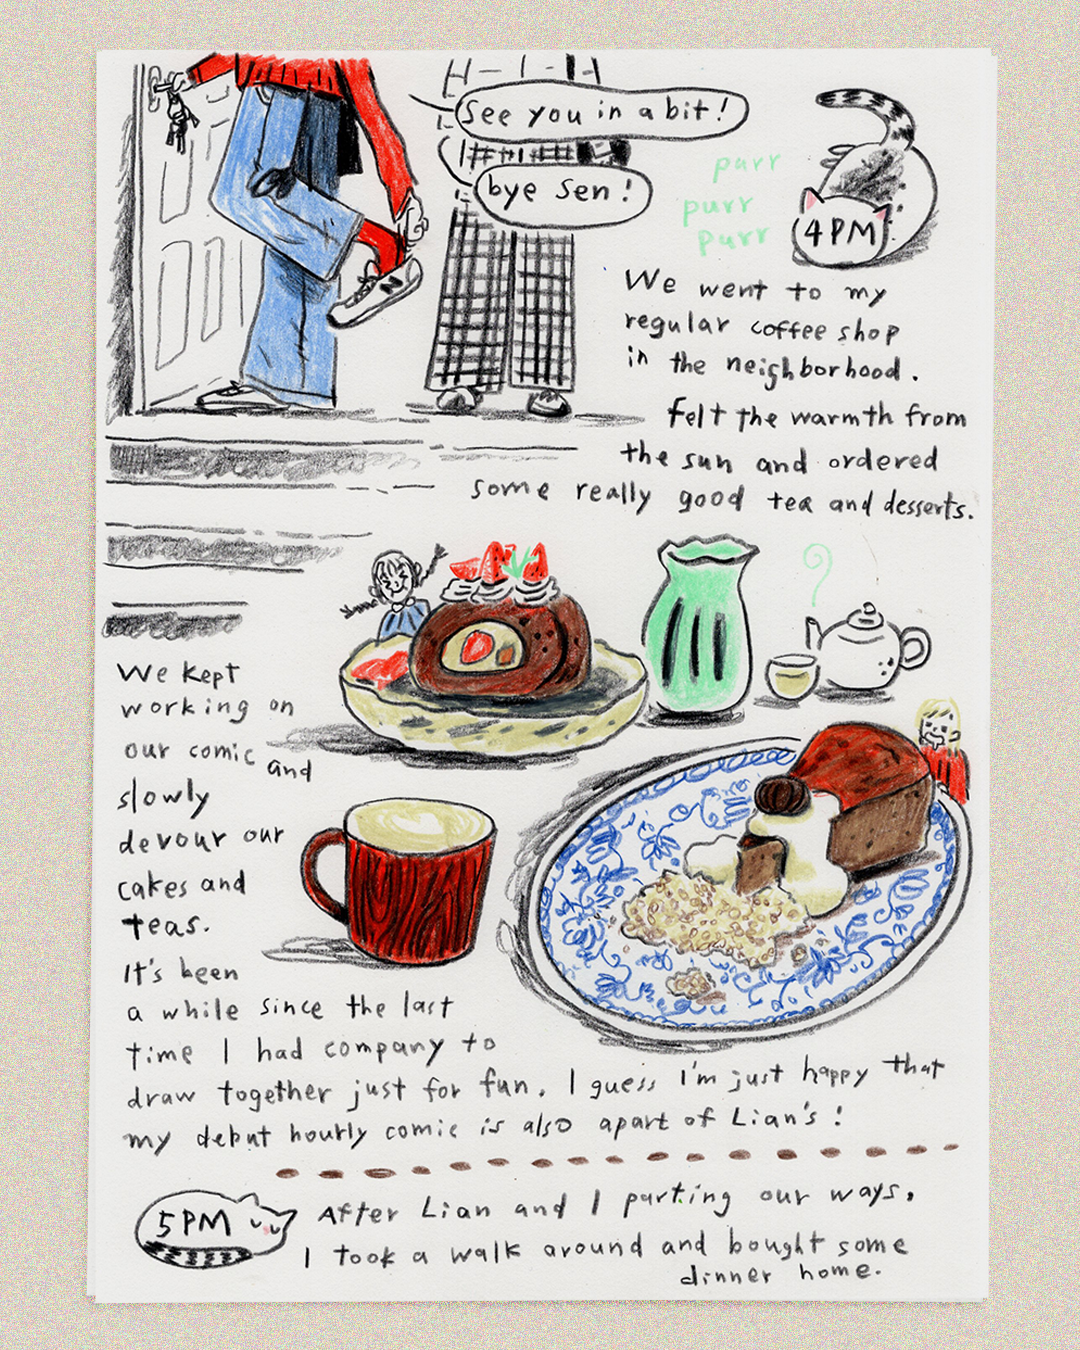 See you in a bit!
bye Sen!
purr
purr
purr
4PM
We went to my
regular coffee shop
in the neighborhood.
Felt the warmth from
the sun and ordered
some really good tea and desserts.
We kept
working on
our comic and
slowly
devour our
cakes and
teas.
It's been
a while since the last
time I had company to
draw together just for fun. I guess I'm just happy that
my debut hourly comic is also apart of Lian's!
5PM
After Lian and I parting our ways,
I took a walk around and bought some
dinner home.